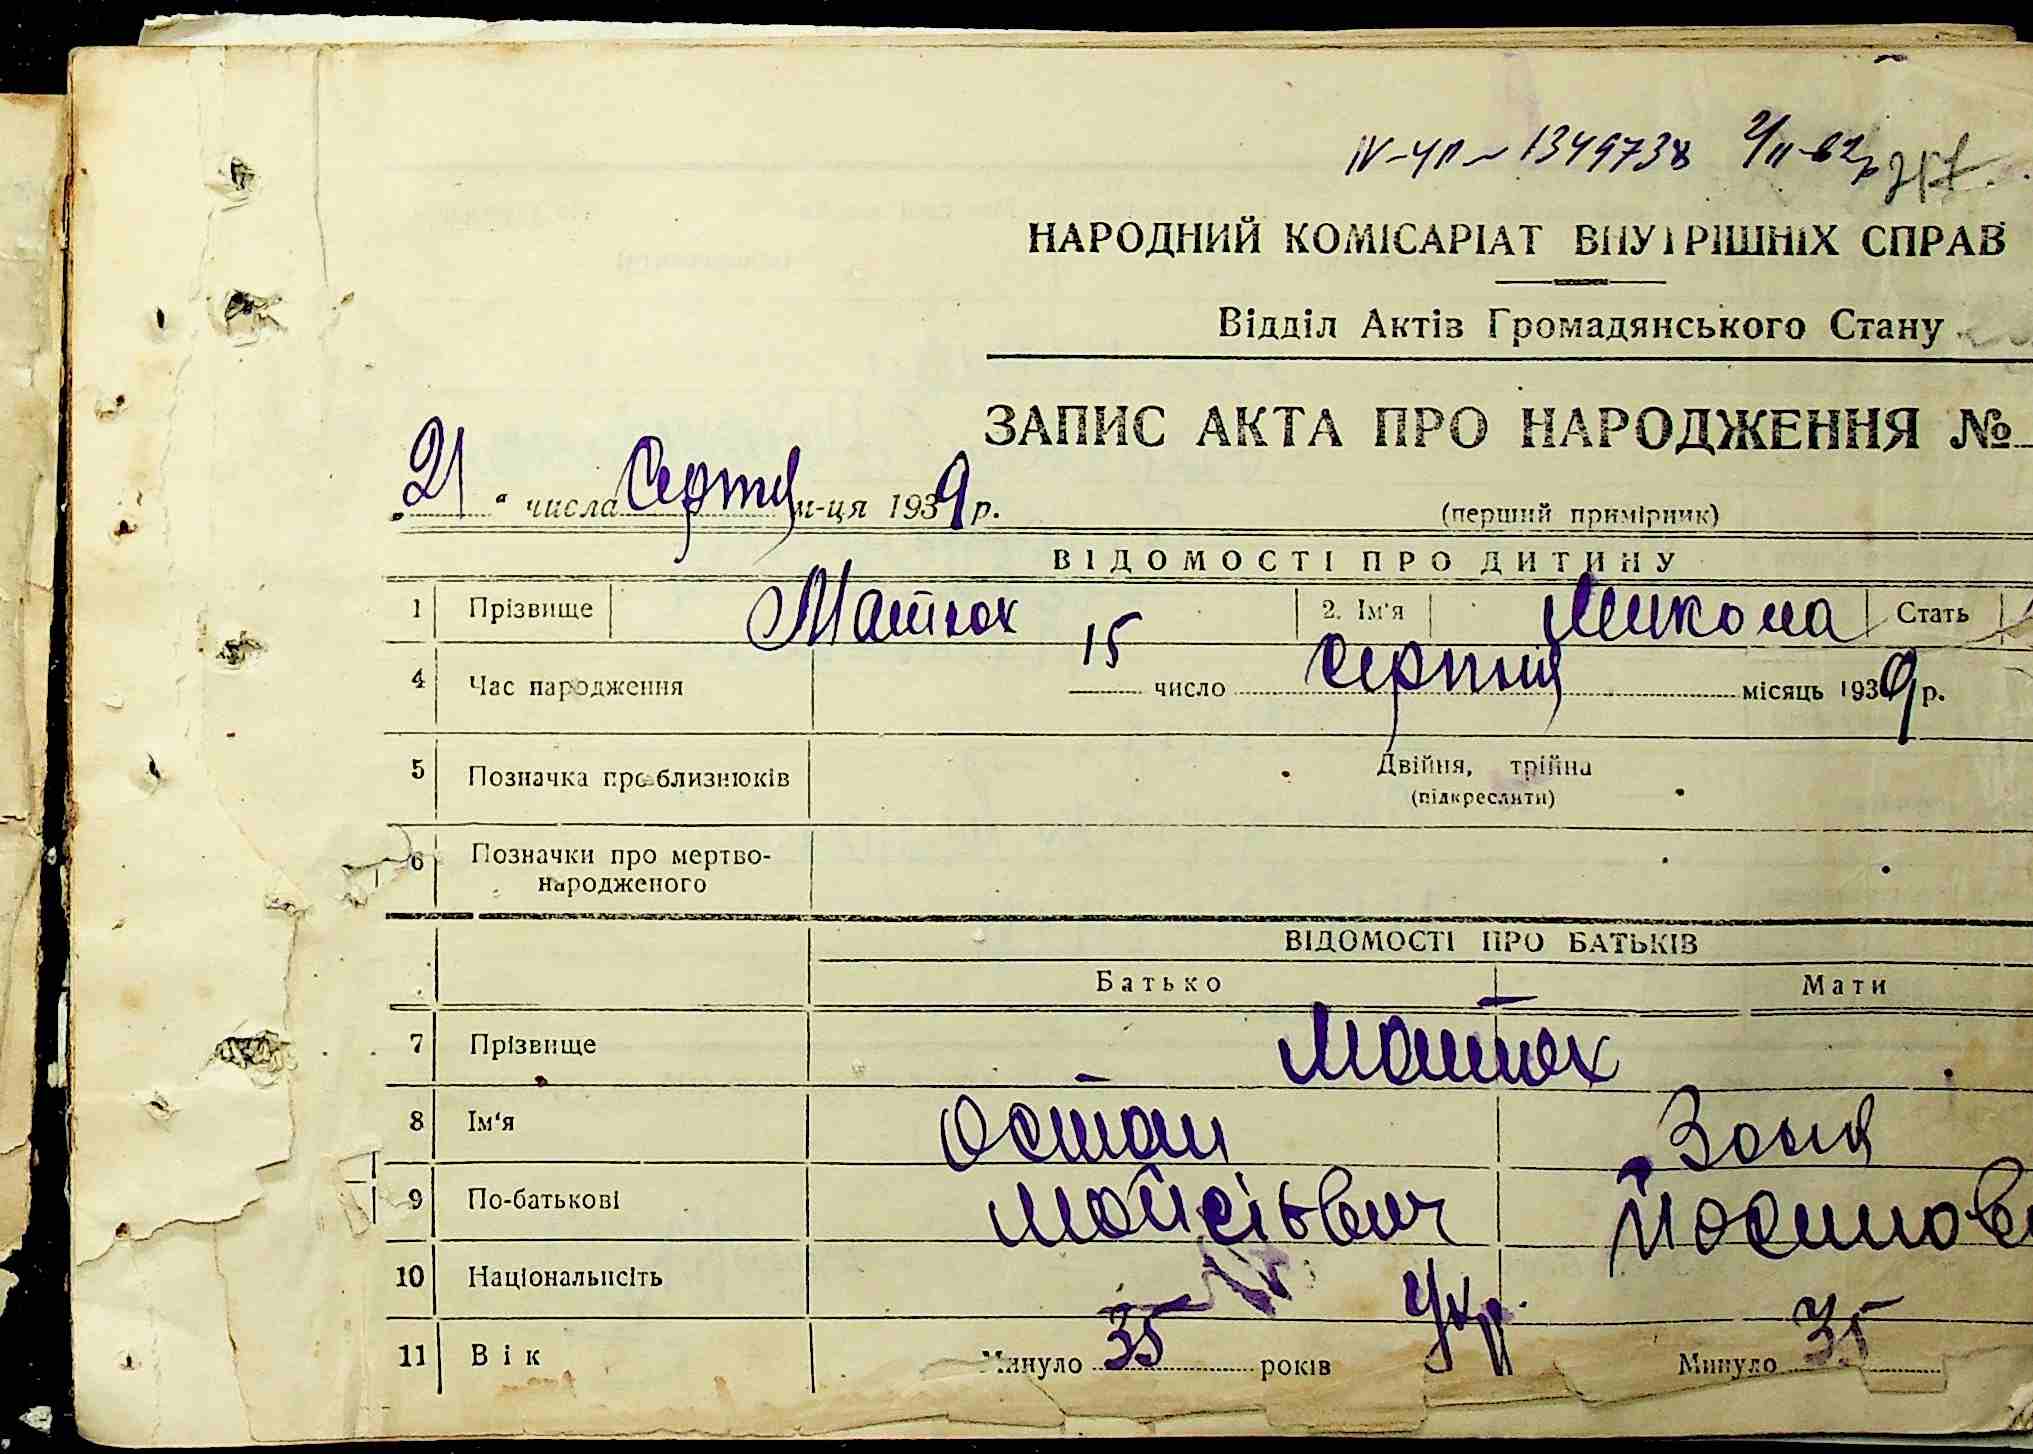 IV-УП ~ 1349738 2/II-62р
НАРОДНИЙ КОМІСАРІАТ ВНУТРІШНІХ СПРАВ
Відділ Актів Громадянського Стану
ЗАПИС АКТА ПРО НАРОДЖЕННЯ №
„21“ числа Серпня м-ця 1939 р.
(перший примірник)
ВІДОМОСТІ ПРО ДИТИНУ
1 Прізвище Матюх 2. Ім'я Микола Стать
4 Час народження 15 число серпня місяць 1939 р.
5 Позначка про близнюків Двійня, трійна
(підкреслити)
6 Позначки про мертво-
народженого
ВІДОМОСТІ ПРО БАТЬКІВ
Батько Мати
7 Прізвище Матюх
8 Ім'я Остап Зоня
9 По-батькові Мойсійович Йосипов
10 Національність Укр.
11 Вік Минуло 35 років Минуло 35